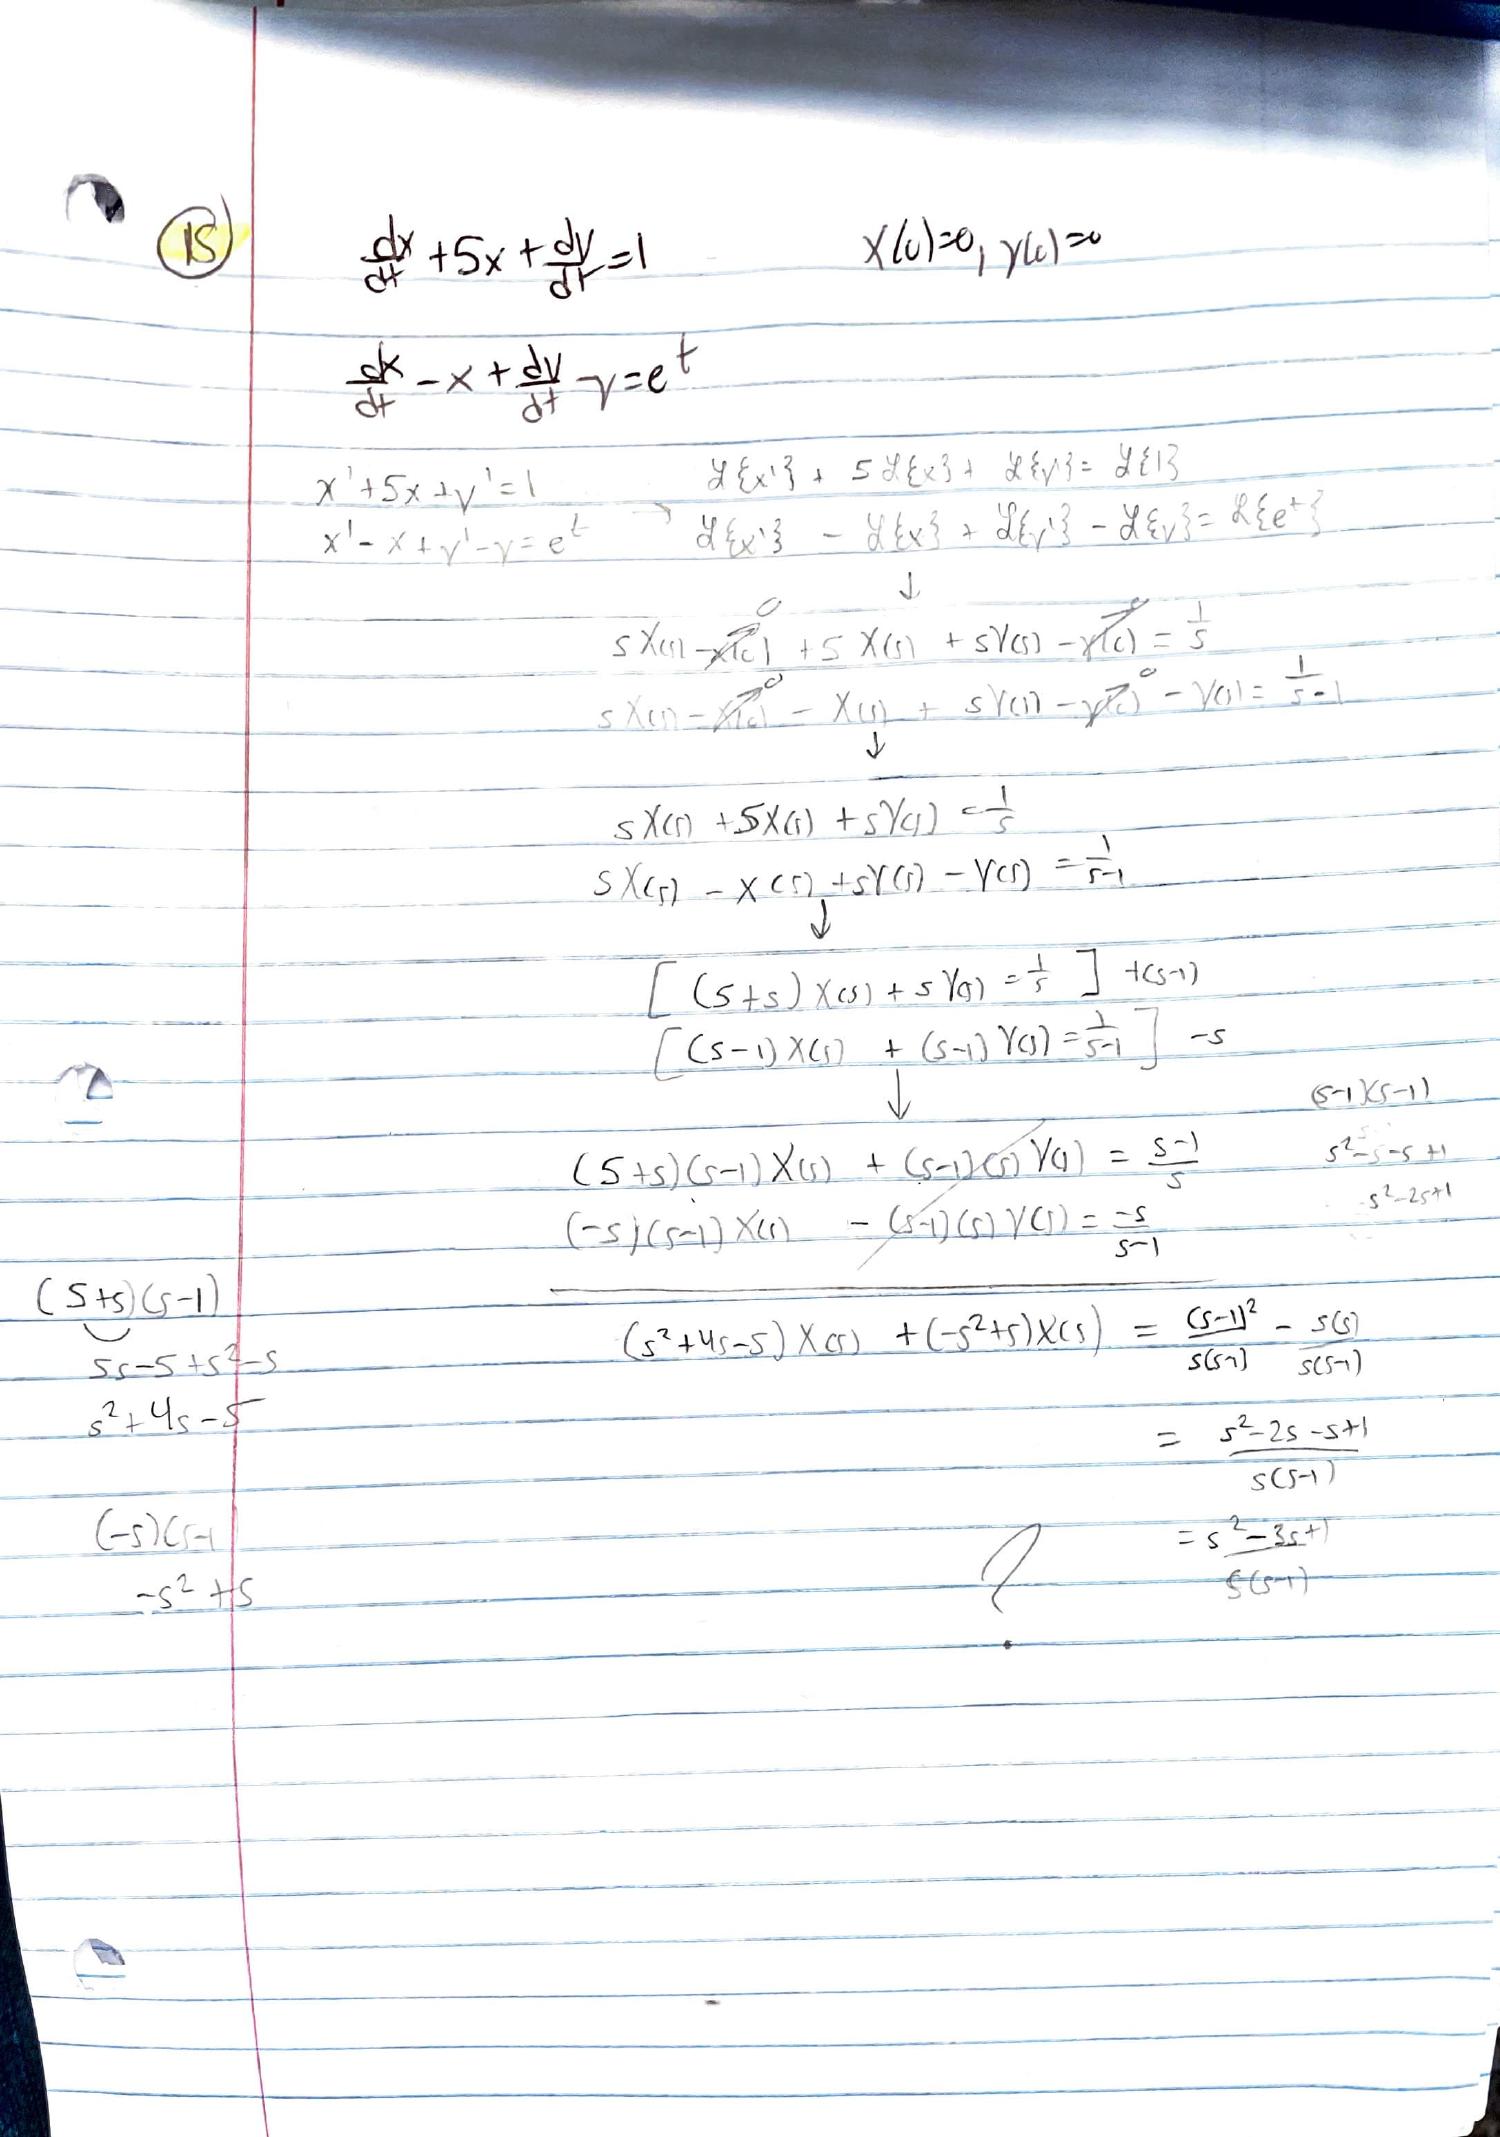 15
dx/dt + 5x + dy/dt = 1    x(0)=0, y(0)=0
dx/dt - x + dy/dt - y = e^t
x' + 5x + y' = 1    ℒ{x'} + 5ℒ{x} + ℒ{y'} = ℒ{1}
x' - x + y' - y = e^t → ℒ{x'} - ℒ{x} + ℒ{y'} - ℒ{y} = ℒ{e^t}
↓
sX(s) - x(0) 0 + 5X(s) + sY(s) - y(0) 0 = 1/s
sX(s) - x(0) 0 - X(s) + sY(s) - y(0) 0 - Y(s) = 1/(s-1)
↓
sX(s) + 5X(s) + sY(s) = 1/s
sX(s) - X(s) + sY(s) - Y(s) = 1/(s-1)
↓
[ (5+s)X(s) + sY(s) = 1/s ] +(s-1)
[ (s-1)X(s) + (s-1)Y(s) = 1/(s-1) ] -s
↓
(s-1)(s-1)
s²-s-s+1
s²-2s+1
(5+s)(s-1)X(s) + (s-1)(s)Y(s) = (s-1)/s
(-s)(s-1)X(s) - (s-1)(s)Y(s) = -s/(s-1)
(5+s)(s-1)
5s-5+s²-s
s²+4s-5
(s²+4s-5)X(s) + (-s²+s)X(s) = (s-1)²/s(s-1) - s(s)/s(s-1)
= s²-2s-s+1/s(s-1)
= s²-3s+1/s(s-1)
(-s)(s-1
-s²+s
?